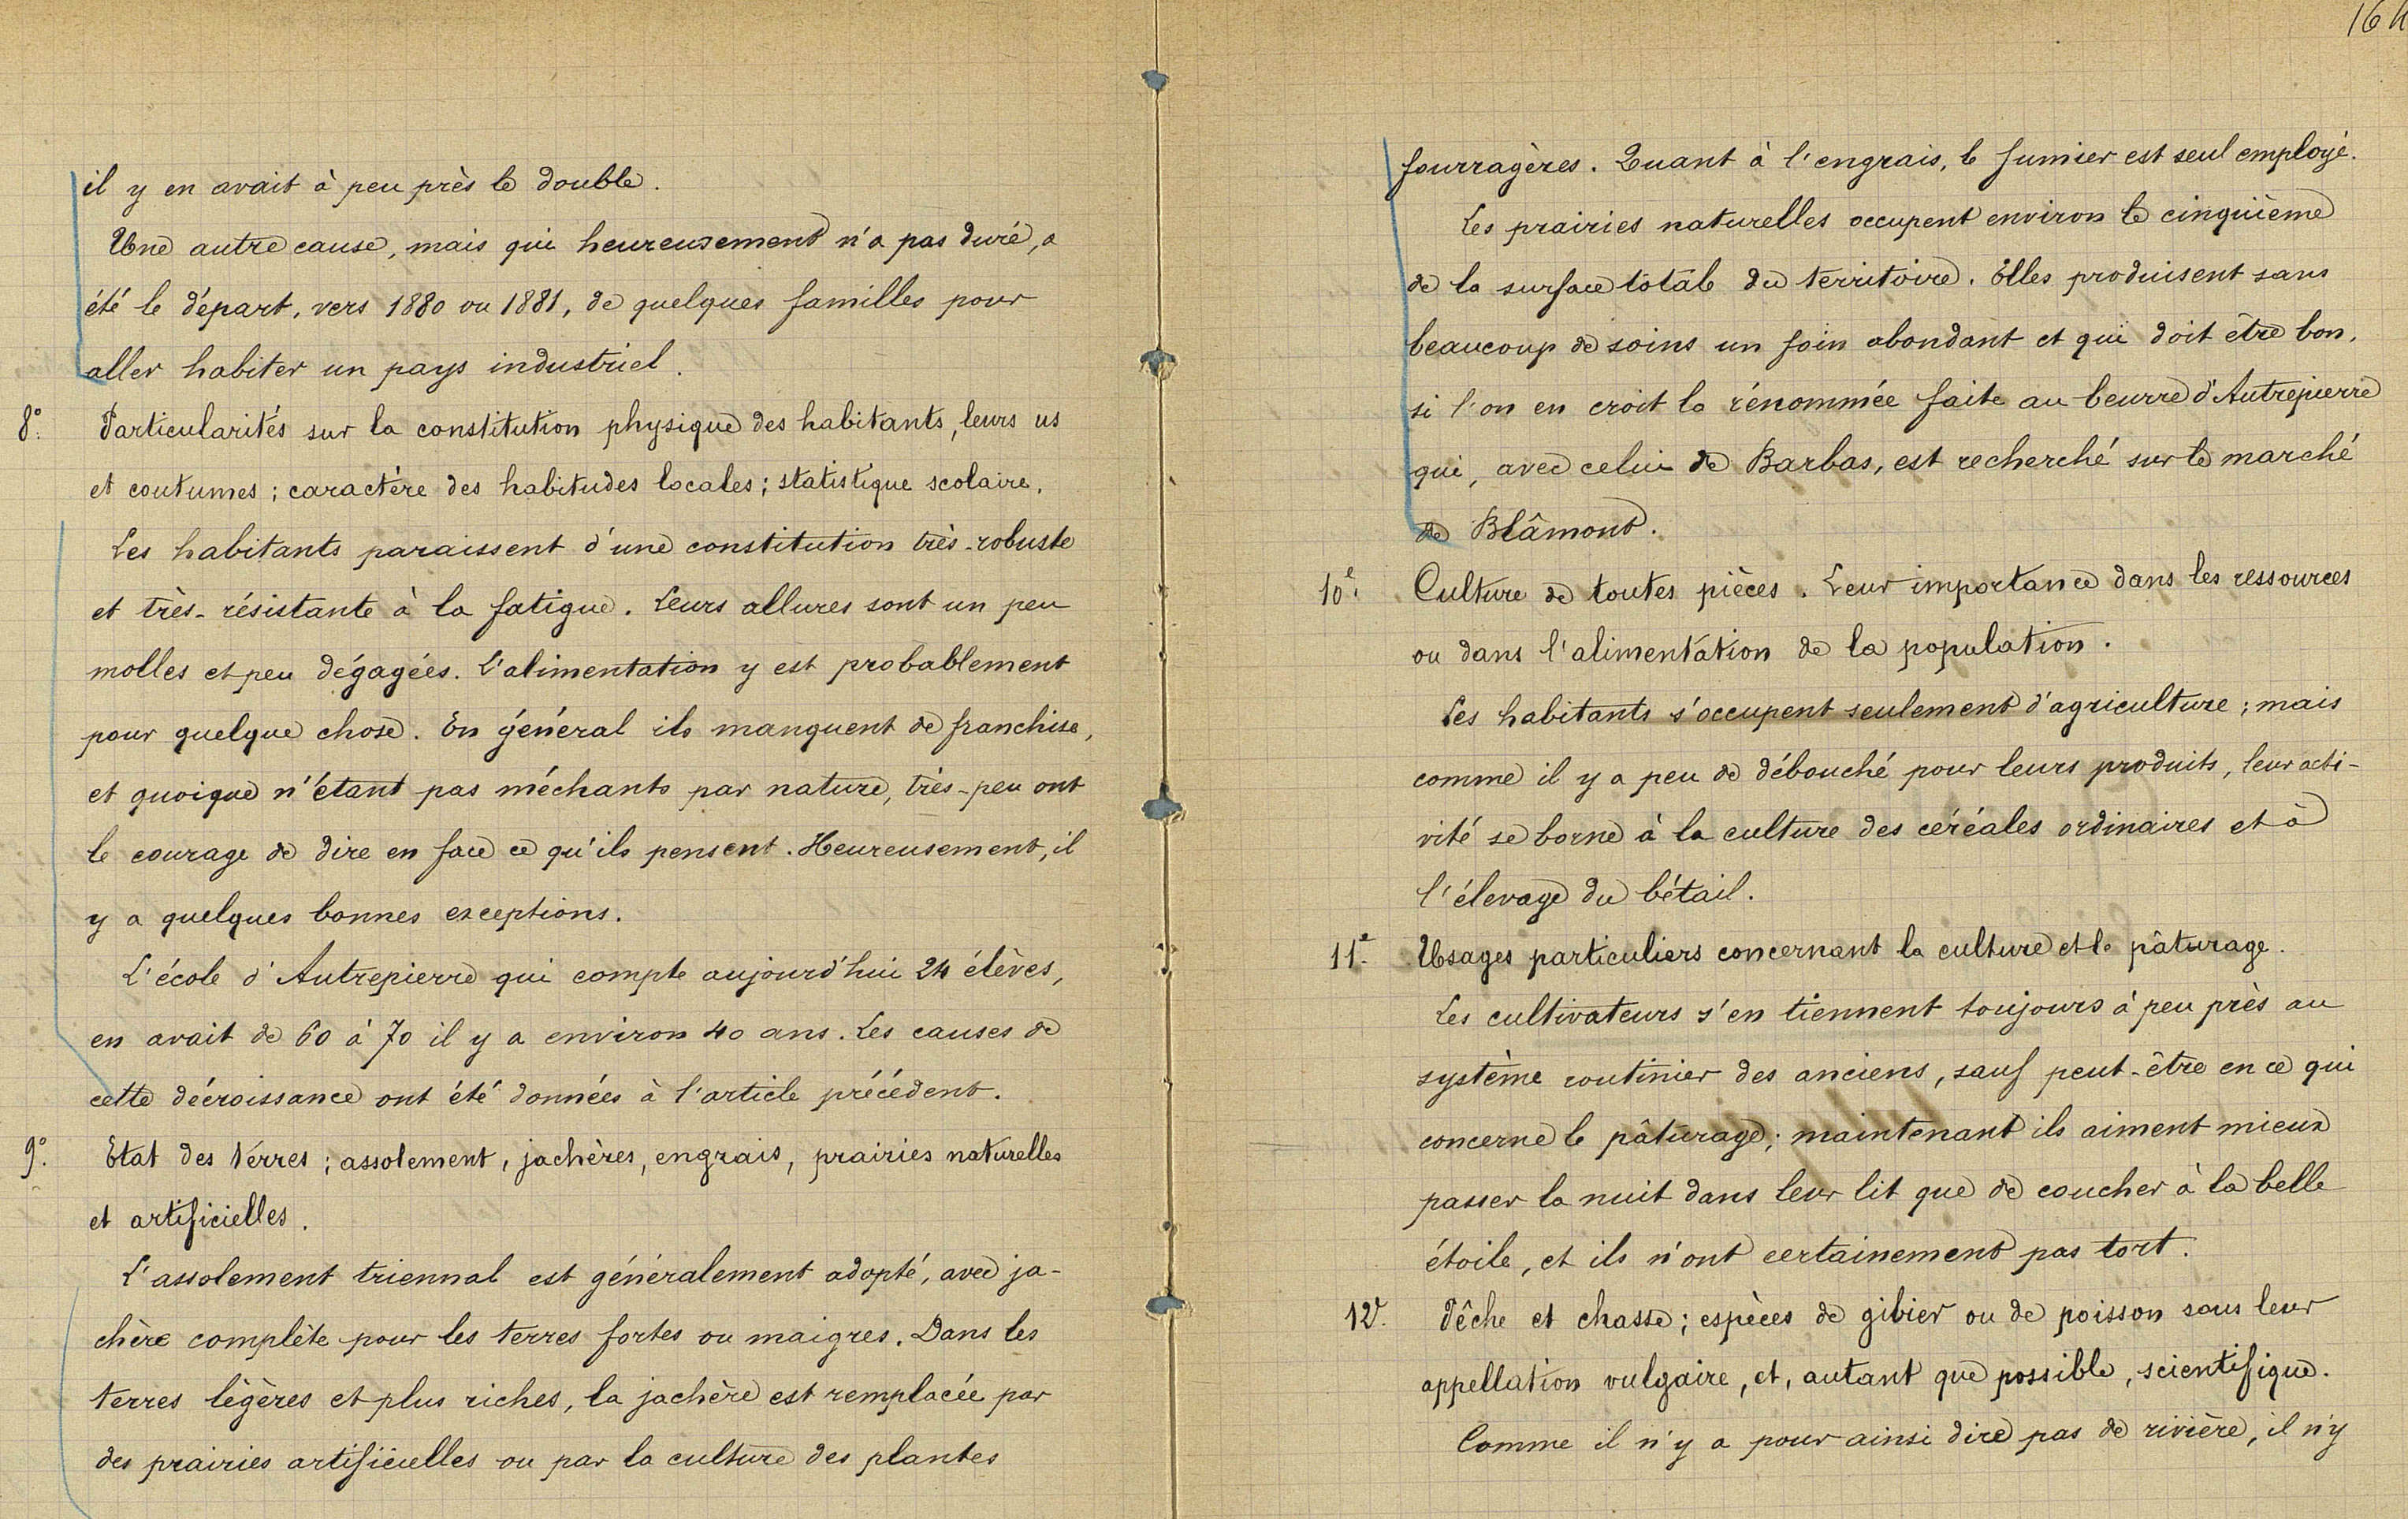 il y en avait à peu près le double.
Une autre cause, mais qui heureusement n'a pas duré, a
été le départ, vers 1880 ou 1881, de quelques familles pour
aller habiter un pays industriel.
8°. Particularités sur la constitution physique des habitants, leurs us
et coutumes ; caractère des habitudes locales ; statistique scolaire.
Les habitants paraissent d'une constitution très-robuste
et très-résistante à la fatigue. Leurs allures sont un peu
molles et peu dégagées. L'alimentation y est probablement
pour quelque chose. En général ils manquent de franchise,
et quoique n'étant pas méchants par nature, très-peu ont
le courage de dire en face ce qu'ils pensent. Heureusement, il
y a quelques bonnes exceptions.
L'école d'Autrepierre qui compte aujourd'hui 24 élèves,
en avait de 60 à 70 il y a environ 40 ans. Les causes de
cette décroissance ont été données à l'article précédent.
9°. Etat des terres ; assolement, jachères, engrais, prairies naturelles
et artificielles.
L'assolement triennal est généralement adopté, avec ja-
chère complète pour les terres fortes ou maigres. Dans les
terres légères et plus riches, la jachère est remplacée par
des prairies artificielles ou par la culture des plantes
164
fourragères. Quant à l'engrais, le fumier est seul employé.
Les prairies naturelles occupent environ le cinquième
de la surface totale du territoire. Elles produisent sans
beaucoup de soins un foin abondant et qui doit être bon,
si l'on en croit la rénommée faite au beurre d'Autrepierre
qui, avec celui de Barbas, est recherché sur le marché
de Blâmont.
10e. Culture de toutes pièces. Leur importance dans les ressources
ou dans l'alimentation de la population.
Les habitants s'occupent seulement d'agriculture ; mais
comme il y a peu de débouché pour leurs produits, leur acti-
vité se borne à la culture des céréales ordinaires et à
l'élevage du bétail.
11e. Usages particuliers concernant la culture et le pâturage.
Les cultivateurs s'en tiennent toujours à peu près au
système routinier des anciens, sauf peut-être en ce qui
concerne le pâturage ; maintenant ils aiment mieux
passer la nuit dans leur lit que de coucher à la belle
étoile, et ils n'ont certainement pas tort.
12. Pêche et chasse ; espèces de gibier ou de poisson sous leur
appellation vulgaire, et, autant que possible, scientifique.
Comme il n'y a pour ainsi dire pas de rivière, il n'y